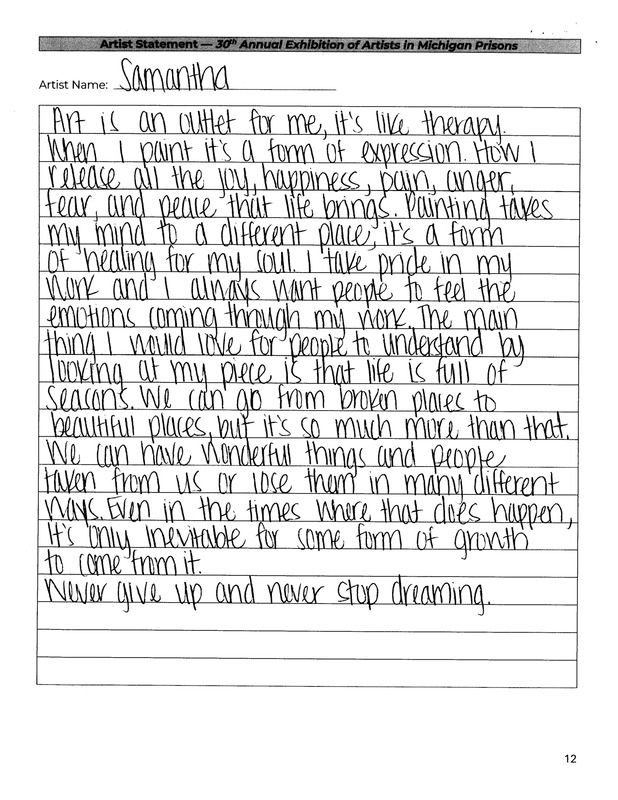 Artist Statement — 30th Annual Exhibition of Artists in Michigan Prisons
Artist Name: Samantha
Art is an outlet for me, it's like therapy.
When I paint it's a form of expression. How I
release all the joy, happiness, pain, anger,
fear, and peace that life brings. Painting takes
my mind to a different place, it's a form
of healing for my soul. I take pride in my
work and I always want people to feel the
emotions coming through my work. The main
thing I would love for people to understand by
looking at my piece is that life is full of
seacons. We can go from broken places to
beautiful places, but it's so much more than that.
We can have wonderful things and people
taken from us or lose them in many different
ways. Even in the times where that does happen,
it's only inevitable for some form of growth
to come from it.
Never give up and never stop dreaming.
12